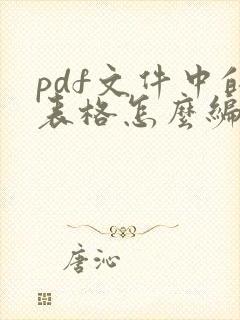 pdf文件中的
表格怎麽编
唐沁